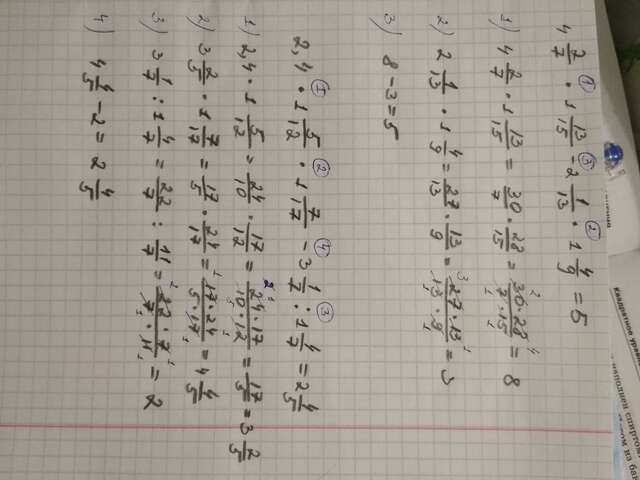 4 2/7 · 1 13/15 - 2 1/13 · 1 4/9 = 5
① ③ ②
1) 4 2/7 · 1 13/15 = 30/7 · 28/15 = 30·28/7·15 = 8
2) 2 1/13 · 1 4/9 = 27/13 · 13/9 = 27·13/13·9 = 3
3) 8 - 3 = 5
① ② ④ ③
2,4 · 1 5/12 · 1 7/17 - 3 1/7 : 1 4/7 = 2 4/5
1) 2,4 · 1 5/12 = 24/10 · 17/12 = 24·17/10·12 = 17/5 = 3 2/5
2) 3 2/5 · 1 7/17 = 17/5 · 24/17 = 17·24/5·17 = 4 4/5
3) 3 1/7 : 1 4/7 = 22/7 : 11/7 = 22·7/7·11 = 2
4) 4 4/5 - 2 = 2 4/5
квадратное уравн
наполнен спиртом